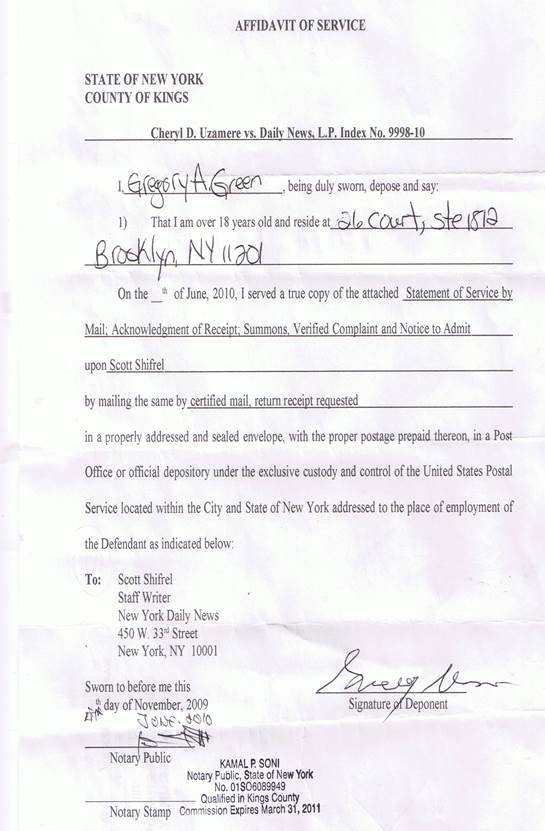 AFFIDAVIT OF SERVICE
STATE OF NEW YORK
COUNTY OF KINGS
Cheryl D. Uzamere vs. Daily News, L.P. Index No. 9998-10
I, Gregory A. Green, being duly sworn, depose and say:
1) That I am over 18 years old and reside at 26 Court, Ste 1812
Brooklyn, NY 11201
On the __th of June, 2010, I served a true copy of the attached Statement of Service by
Mail; Acknowledgment of Receipt; Summons, Verified Complaint and Notice to Admit
upon Scott Shifrel
by mailing the same by certified mail, return receipt requested
in a properly addressed and sealed envelope, with the proper postage prepaid thereon, in a Post
Office or official depository under the exclusive custody and control of the United States Postal
Service located within the City and State of New York addressed to the place of employment of
the Defendant as indicated below:
To: Scott Shifrel
Staff Writer
New York Daily News
450 W. 33rd Street
New York, NY 10001
Sworn to before me this
th day of November, 2009
JUNE. 2010
Signature of Deponent
Notary Public
KAMAL P. SONI
Notary Public, State of New York
No. 01SO6089949
Qualified in Kings County
Notary Stamp Commission Expires March 31, 2011